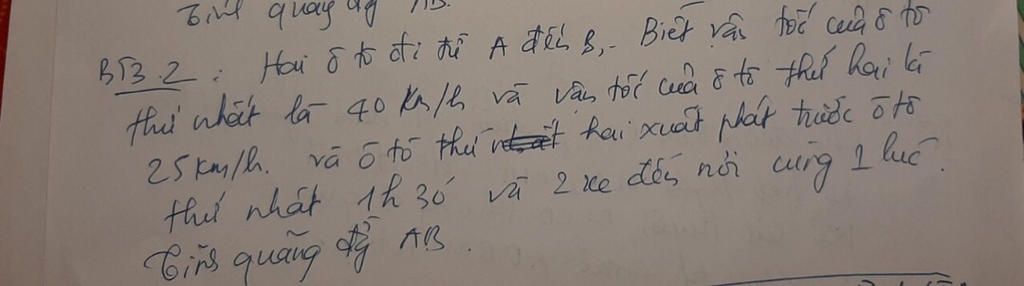 Tính quãng đg AB.
BT3.2: Hai ô tô đi từ A đến B. Biết vận tốc của ô tô
thứ nhất là 40 km/h và vận tốc của ô tô thứ hai là
25 km/h. và ô tô thứ hai xuất phát trước ô tô
thứ nhất 1h 30' và 2 xe đến nơi cùng 1 lúc.
Tính quãng đg AB.